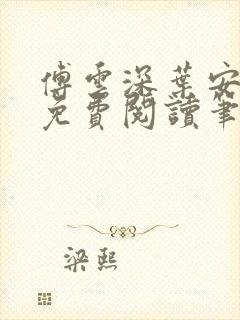 傅雲深葉安
免費閱讀筆
梁熙